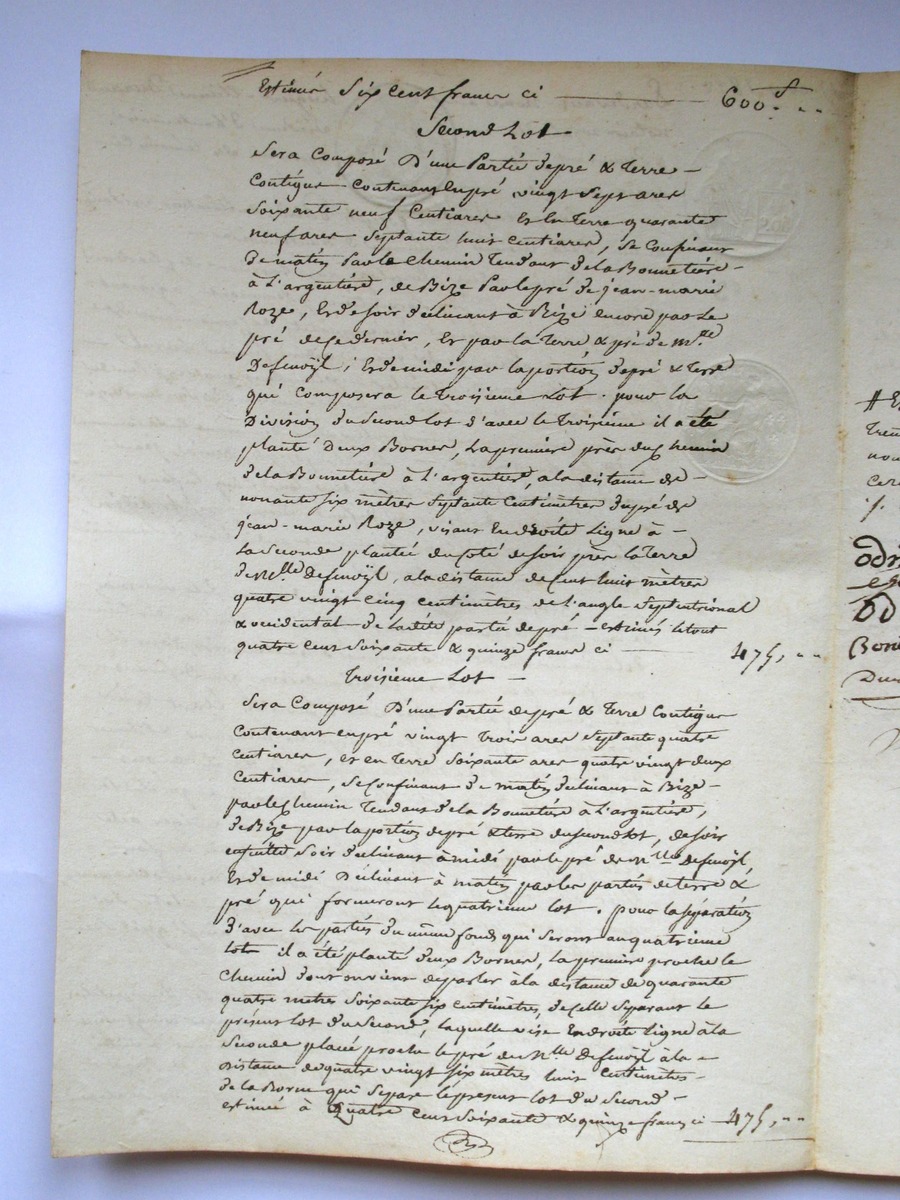 Estimés Six cent francs ci —— 600.f "
Second Lot
Sera Composé D'une Partie de pré & Terre
Contigue Contenant en pré vingt Sept ares
Soixante neuf Centiares Et En Terre quarante
neuf ares Septante huit Centiares, Se Confinant
De matin Par le Chemin Tendant de la Bonnetière
à L'argentière, de Bize Par le pré de jean-marie
Roze, Et de soir déclinant à Bize encore par Le
pré de Ce dernier, Et par la Terre & pré de M.lle
; Et de midi par la portion de pré & Terre
qui Composera le Troisieme Lot. pour la
Division du Second lot d'avec le Troisieme il a été
planté Deux Bornes, La premiere près du Chemin
de la Bonnetière à L'argentière, a la distance de
nonante Six mètres Septante Centimètres du pré de
jean-marie Roze, visant En droite Ligne à
La Seconde plantée du Coté de soir près la Terre
de Mlle , a la distance de Cent huit mètres
quatre vingt Cinq Centimètres de L'angle Septentrional
& occidental de Ladite partie de pré – Estimés le tout
quatre Cent Soixante & quinze francs ci —— 475, "
Troisieme Lot
Sera Composé D'une Partie de pré & Terre Contigue
Contenant en pré vingt Trois ares Septante quatre
Centiares, et en Terre Soixante ares quatre vingt deux
Centiares, Se Confinant De matin déclinant à Bize
par le Chemin Tendant de la Bonnetière à L'argentière,
de Bize par la portion de pré & terre du Second lot, de soir
ensuite Soir déclinant à midi par le pré de Mlle
Et de midi Déclinant à matin par les parties de terre &
pré qui formeront le quatrieme lot. pour la séparation
D'avec les parties du même fond qui Seront au quatrieme
lot il a été planté deux Bornes, la premiere proche le
Chemin dont on vient de parler à la distance de quarante
quatre mètres Soixante Six Centimètres, de Celle Separant le
présent lot du Second, laquelle vise En droite Ligne à la
Seconde placée proche le pré de Mlle à la
Distance de quatre vingt Six mètres huit Centimètres
de la Borne qui Separe le present lot du Second
estimée à Quatre Cent Soixante & quinze francs ci — 475, "